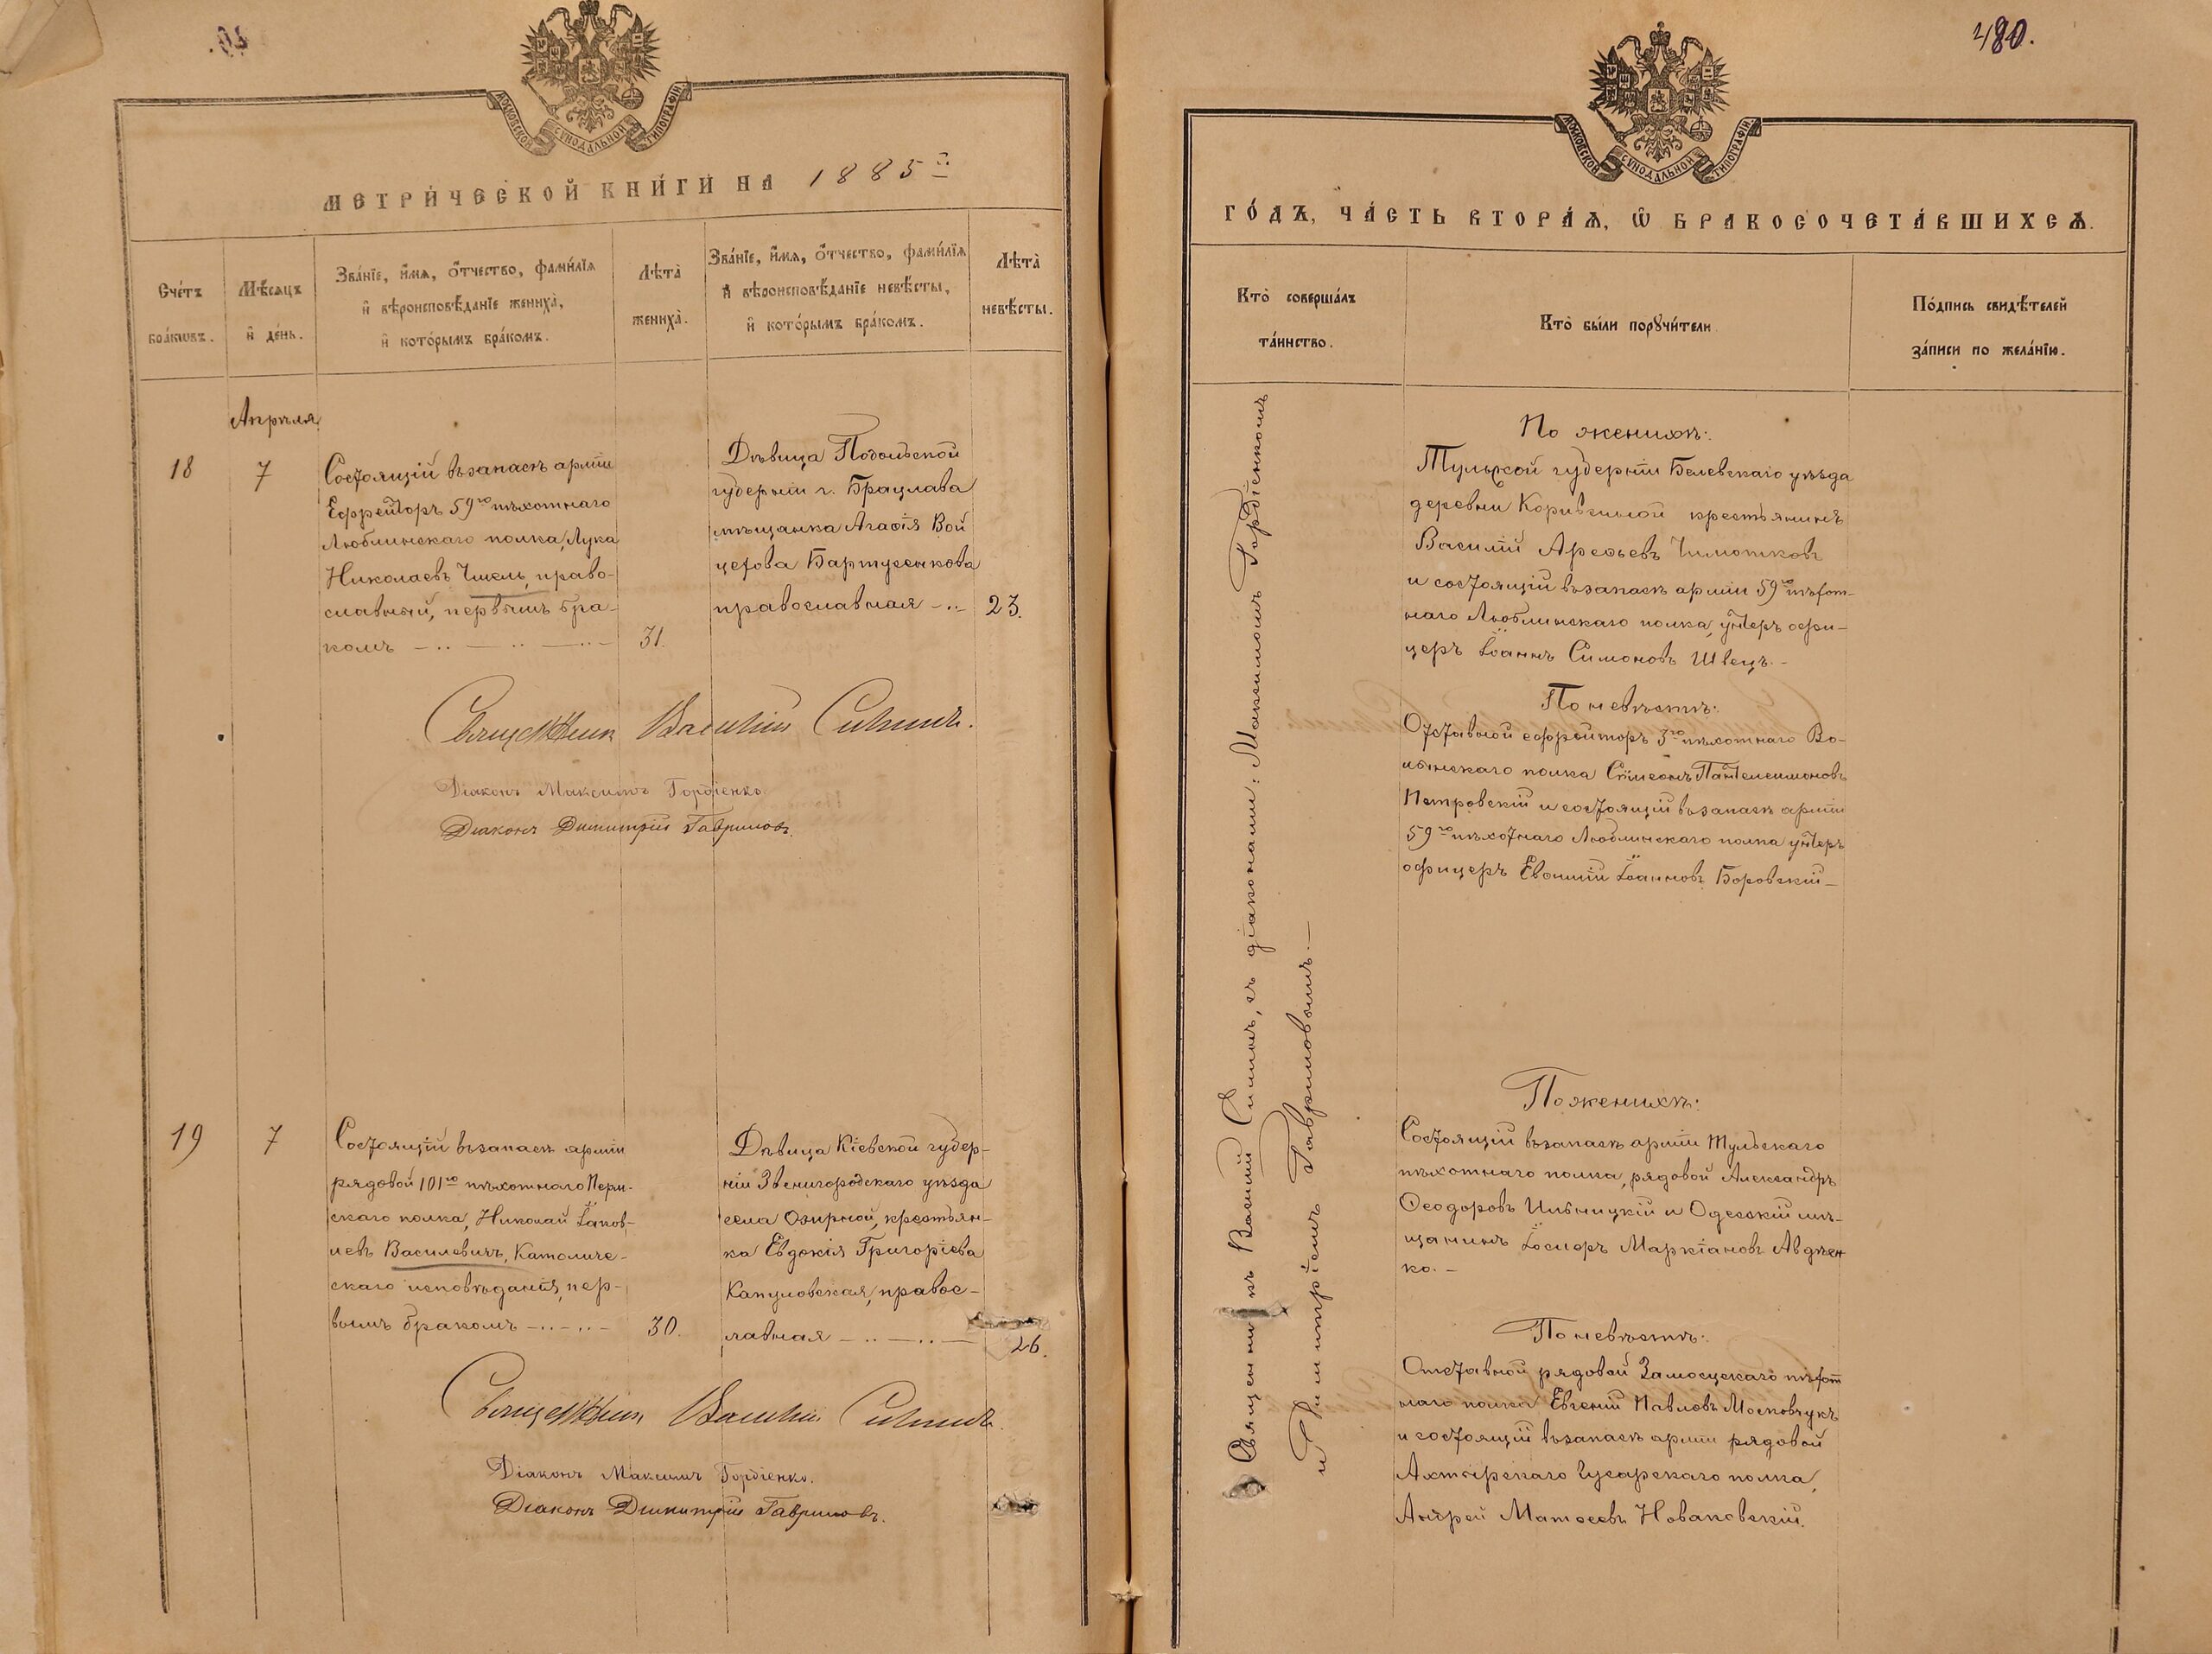 480.
МОСКОВСКОЙ СѴНОДАЛЬНОЙ ТИПОГРАФІИ
МЕТРИ́ЧЕСКОЙ КНИ́ГИ НА 1885й
Сче́тъ бра́кѡвъ.
Мѣ́сяцъ и҆ де́нь.
Зва́нїе, и҆́мѧ, ѻ҆́тчество, фами́лїѧ
и҆ вѣроисповѣ́данїе жениха̀,
и҆ кото́рымъ бра́комъ.
Лѣ́та̀ жениха̀.
Зва́нїе, и҆́мѧ, ѻ҆́тчество, фами́лїѧ
и҆ вѣроисповѣ́данїе невѣ́сты,
и҆ кото́рымъ бра́комъ.
Лѣ́та̀ невѣ́сты.
Апрѣля
18
7
Состоящій въ запасѣ арміи
Ефрейторъ 59го пѣхотнаго
Люблинскаго полка, Лука
Николаевъ Чмель, право-
славный, первымъ бра-
комъ
31.
Дѣвица Подольской
губерніи г. Брацлава
мѣщанка Агафія Вой
цехова Бартусенкова
православная
23.
Священникъ Василій
Діаконъ Максимъ Гордіенко.
Діаконъ Димитрій Гавриловъ.
19
7
Состоящій въ запасѣ арміи
рядовой 101го пѣхотнаго Перм-
скаго полка, Николай Іаков-
левъ Василевичъ, Католиче-
скаго исповѣданія, пер-
вымъ бракомъ
30.
Дѣвица Кіевской губер-
ніи Звенигородскаго уѣзда
села Озирной, крестьян-
ка Евдокія Григоріева
Капуловская, правос-
лавная
26.
Священникъ Василій
Діаконъ Максимъ Гордіенко.
Діаконъ Димитрій Гавриловъ.
МОСКОВСКОЙ СѴНОДАЛЬНОЙ ТИПОГРАФІИ
ГО́ДЪ, ЧА́СТЬ ВТОРА́Ѧ, Ѡ҆ БРАКОСОЧЕТА́ВШИХСѦ.
Кто̀ соверша́лъ
та́инство.
Кто̀ бы́ли порꙋчи́тели.
По́дпись свидѣ́телей
за́писи по жела́нїю.
Священникъ Василій с діаконами: Максимомъ Гордіенкомъ
и Димитріемъ Гавриловымъ.
По женихѣ:
Тульской губерніи Белевскаго уѣзда
деревни крестьянинъ
Василій Арефьевъ
и состоящій въ запасѣ арміи 59го пѣхот-
наго Люблинскаго полка, унтеръ офи-
церъ Іоаннъ Симоновъ Швецъ.
По невѣстѣ:
Отставной ефрейторъ 3го пѣхотнаго Во-
лынскаго полка Сѵмеонъ Пантелеимоновъ
Петровскій и состоящій въ запасѣ арміи
59го пѣхотнаго Люблинскаго полка унтеръ
офицеръ Евфимій Іоанновъ Боровскій
По женихѣ:
Состоящій въ запасѣ арміи Тульскаго
пѣхотнаго полка, рядовой Александръ
Ѳеодоровъ Ильницкій и Одесскій мѣ-
щанинъ Маркіановъ Авдѣен
ко.
По невѣстѣ:
Отставной рядовой Замосцскаго пѣхот
наго полка Евгеній Павловъ Московчукъ
и состоящій въ запасѣ арміи рядовой
Ахтырскаго Гусарскаго полка,
Андрей Матѳеевъ Новаковскій.